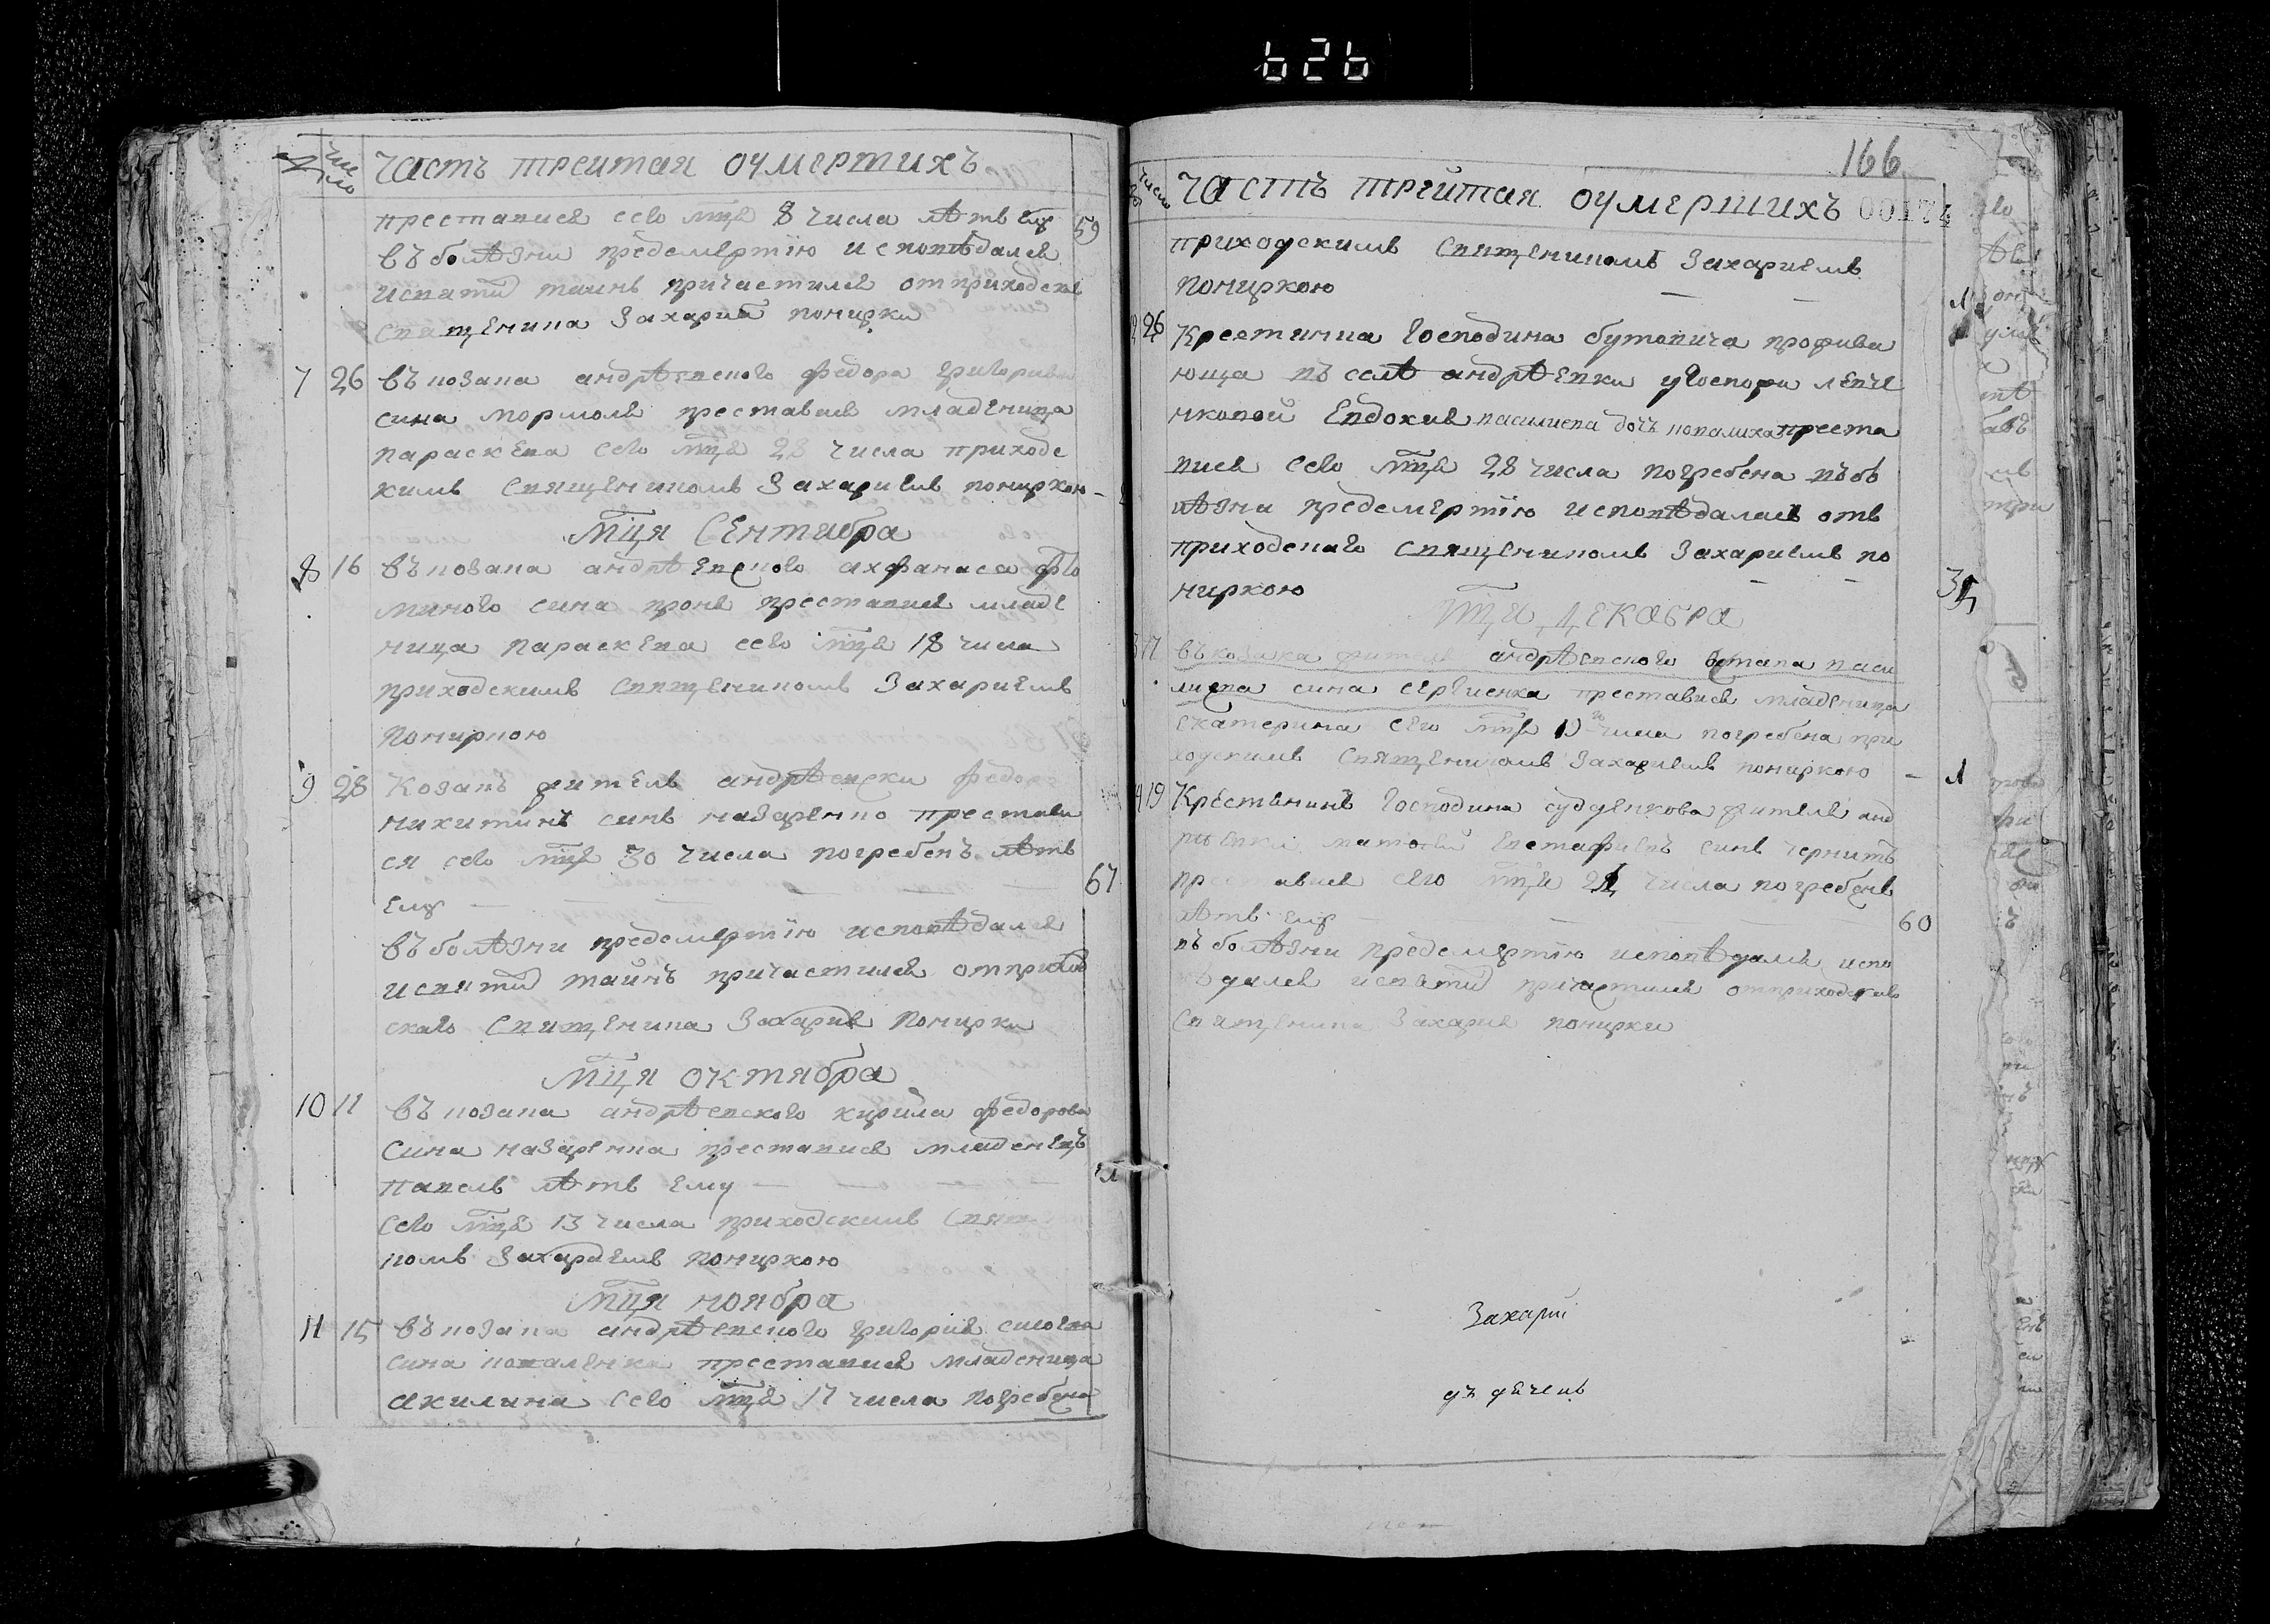 626
№
число
часть треитая оумертихъ
преставися сего мц҃я 8 числа лѣтъ ему 59
въ болѣзни предсмертїю исповѣдался
и святи таинъ причастился от приходско
священика Захарїя Конирки
7 26 въ козака андрѣевского федора григориева
сина мормоля преставися младеница
параскева сего мц҃я 28 числа приходс
кимъ священикомъ Захариемъ кониркою
Мц҃я Сентибра
8 16 въ козака андрѣевского ахфанаса фо
миного сина преставися младе
ница параскева сего мц҃я 18 числа
приходскимъ священикомъ Захариемъ
кониркою
9 28 Козакъ житель андрѣевски федоръ
никитинъ синъ назаренко престави
ся сего мц҃я 30 числа погребенъ лѣтъ
ему 67
въ болѣзни предсмертїю исповѣдался
и святи таинъ причастился от приход
скаго священика Захария Конирки
Мц҃я октября
10 11 въ козака андрѣевского кирила федорова
сина назаренка преставися младенецъ
павелъ лѣтъ ему
сего мц҃я 13 числа приходскимъ свящ
комъ Захариемъ кониркою
Мц҃я ноября
11 15 въ козака андрѣевского григория
сина коваленка преставися младеница
акилина сего мц҃я 17 числа погребена
166
число
часть треитая оумершихъ 00174
приходскимъ священикомъ Захариемъ
Кониркою
26 Крестянка Господина бутовича прожива
юща въ селѣ андрѣевки у Госпожи левче
нковой Евдокия василиева дочь ковалиха преста
вися сего мц҃я 28 числа погребена въ бо
лѣзни предсмертїю исповѣдалася отъ
приходского священикомъ Захариемъ ко
ниркою 35
мц҃я декабра
17 въ козака жителя андрѣевского остапа васи
лиева сина сергиенка преставися младеница
екатерина сего мц҃я 19 го числа погребена при
ходскимъ священикомъ Захариемъ кониркою 1
19 Крестянинъ Господина суддѣнкова жителя анд
рѣевки матвѣй евстафиевъ синъ
преставися сего мц҃я 21 числа погребенъ
лѣтъ ему 60
въ болѣзни предсмертїю исповѣдался испо
вѣдался и святи причастился от приходского
священика Захария конирки
Захарий